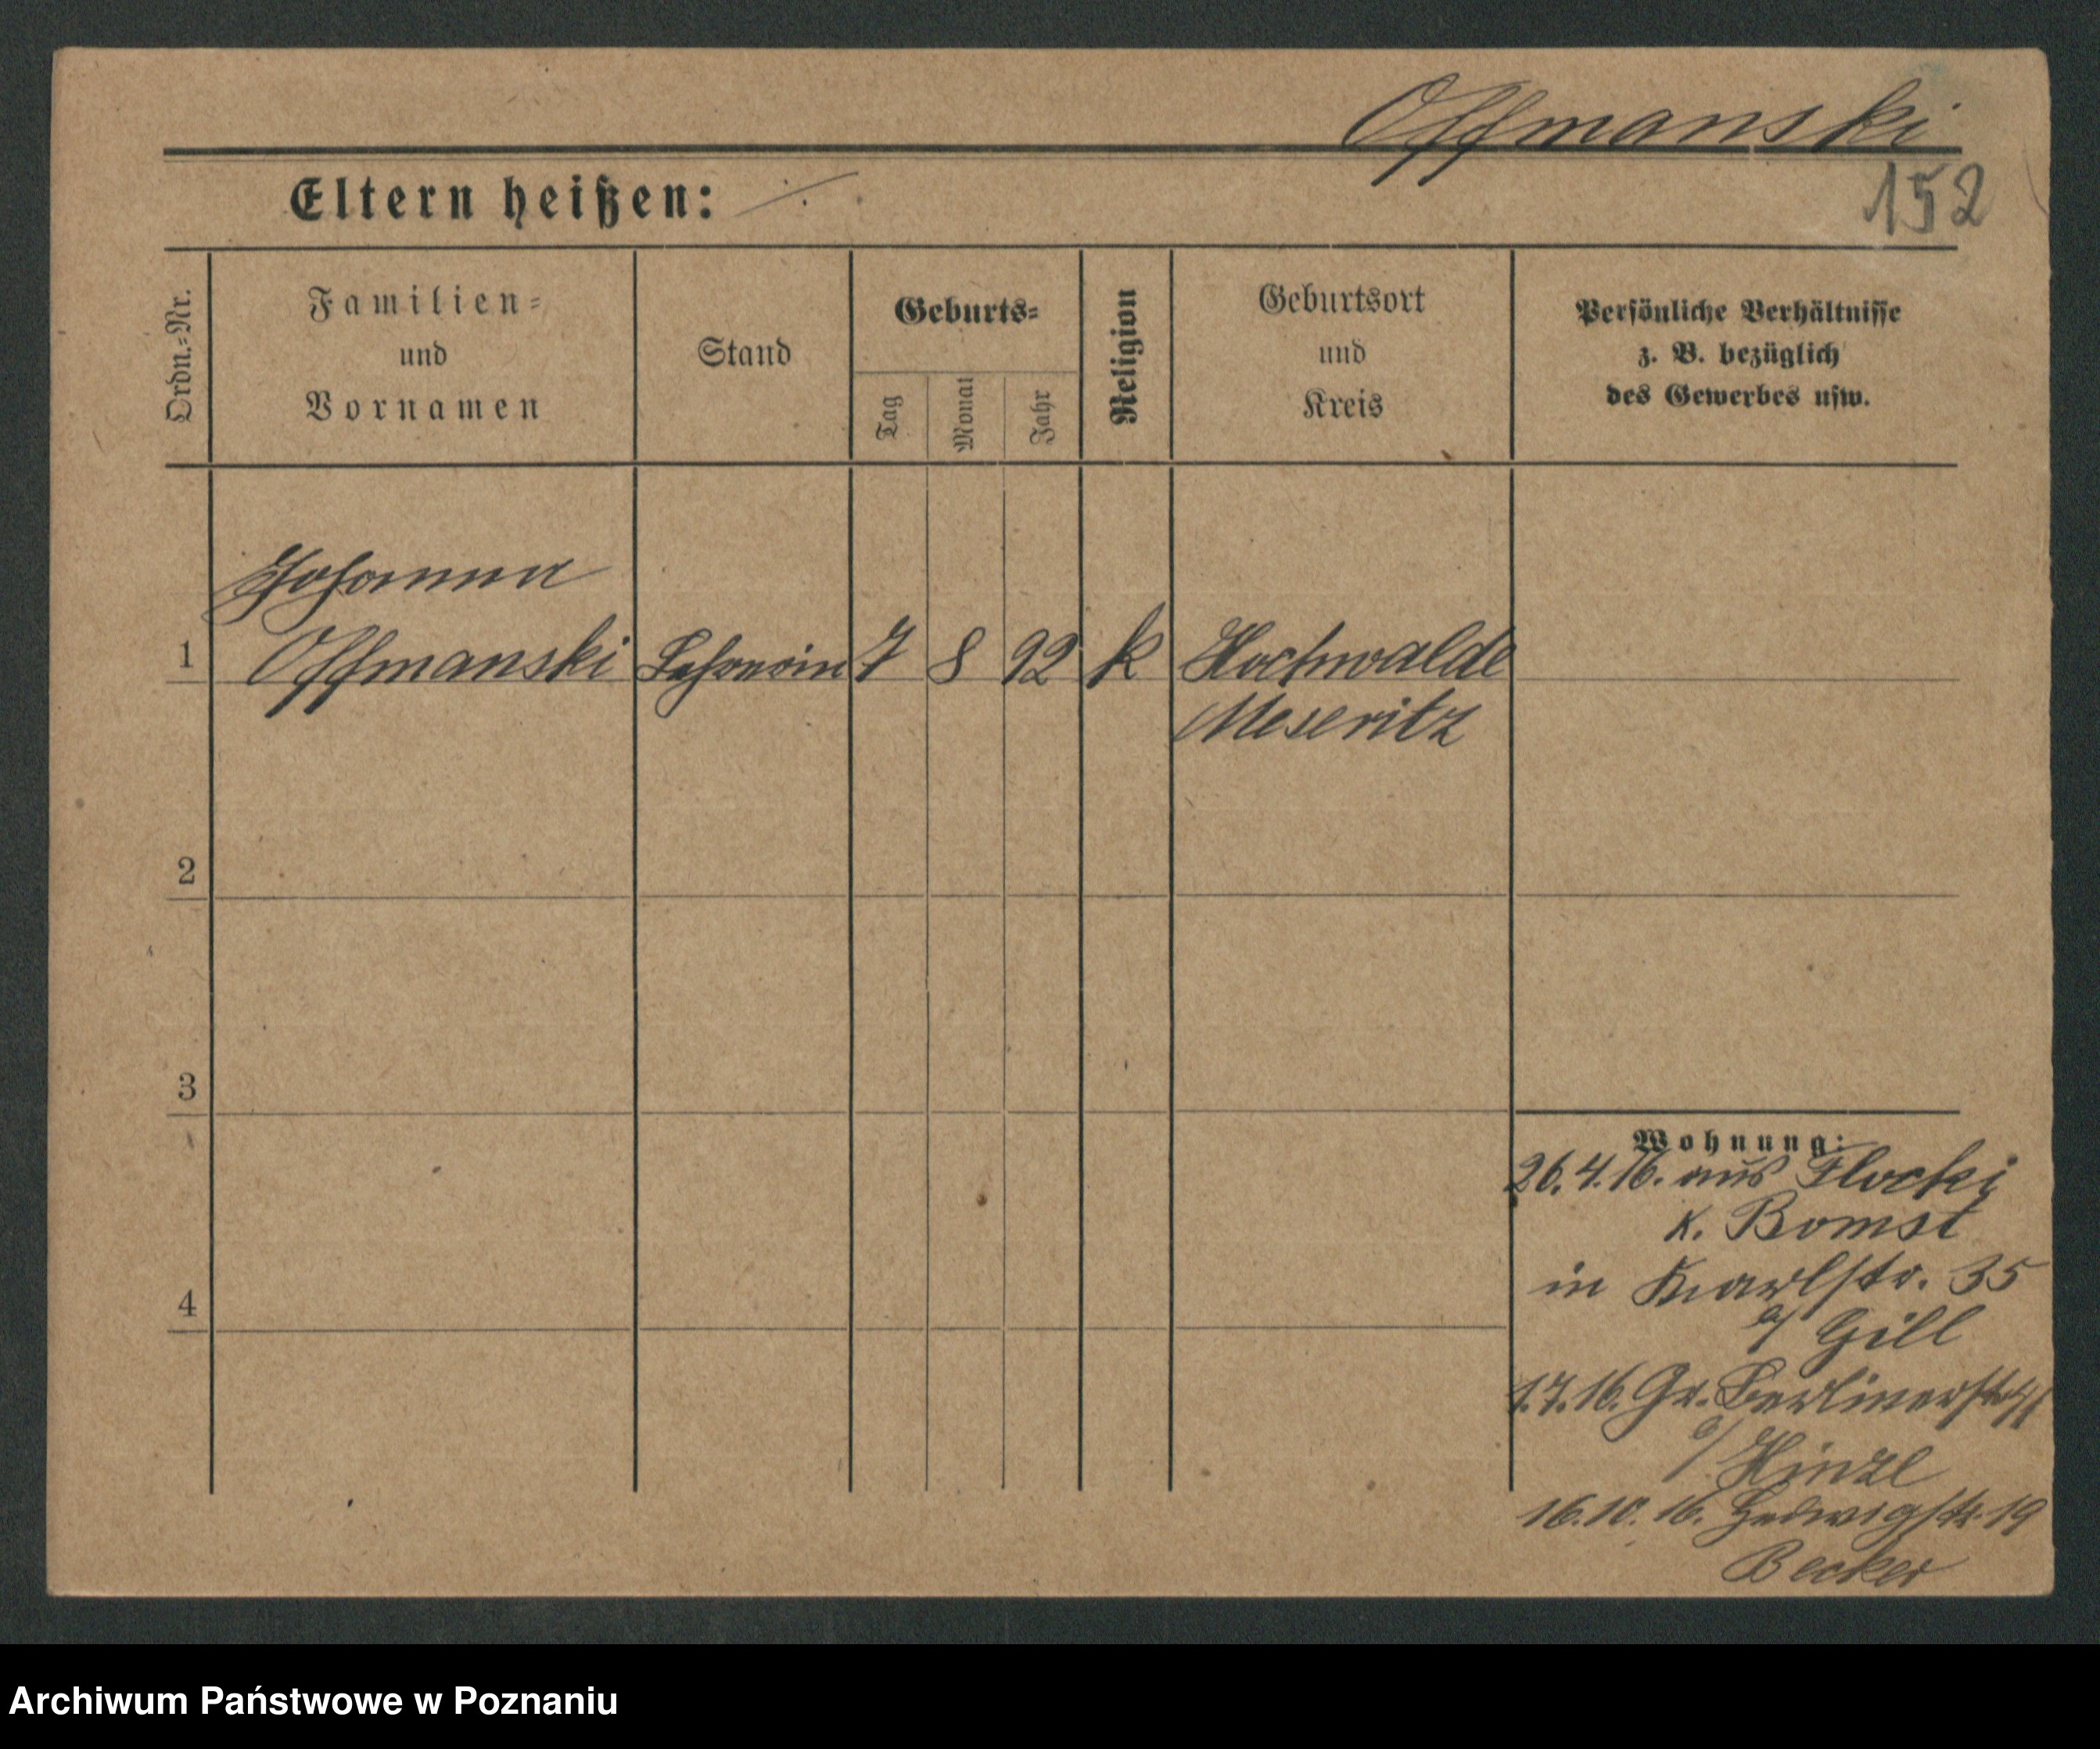 Offmanski
152
Eltern heißen: ./.
Ordn.-Nr.
Familien-
und
Vornamen
Stand
Geburts-
Tag
Monat
Jahr
Religion
Geburtsort
und
Kreis
Persönliche Verhältnisse
z. B. bezüglich
des Gewerbes usw.
Johanna
1 Offmanski Lehrerin 7 8 92 k Hochwalde
Meseritz
2
3
4
Wohnung:
26.4.16. aus Flocki
K. Bomst
in Karlstr. 35
b/ Gill
1.7.16. Gr. Berlinerstr.
b/ Hinze
16.10.16. Hedwigstr. 19
Becker
Archiwum Państwowe w Poznaniu